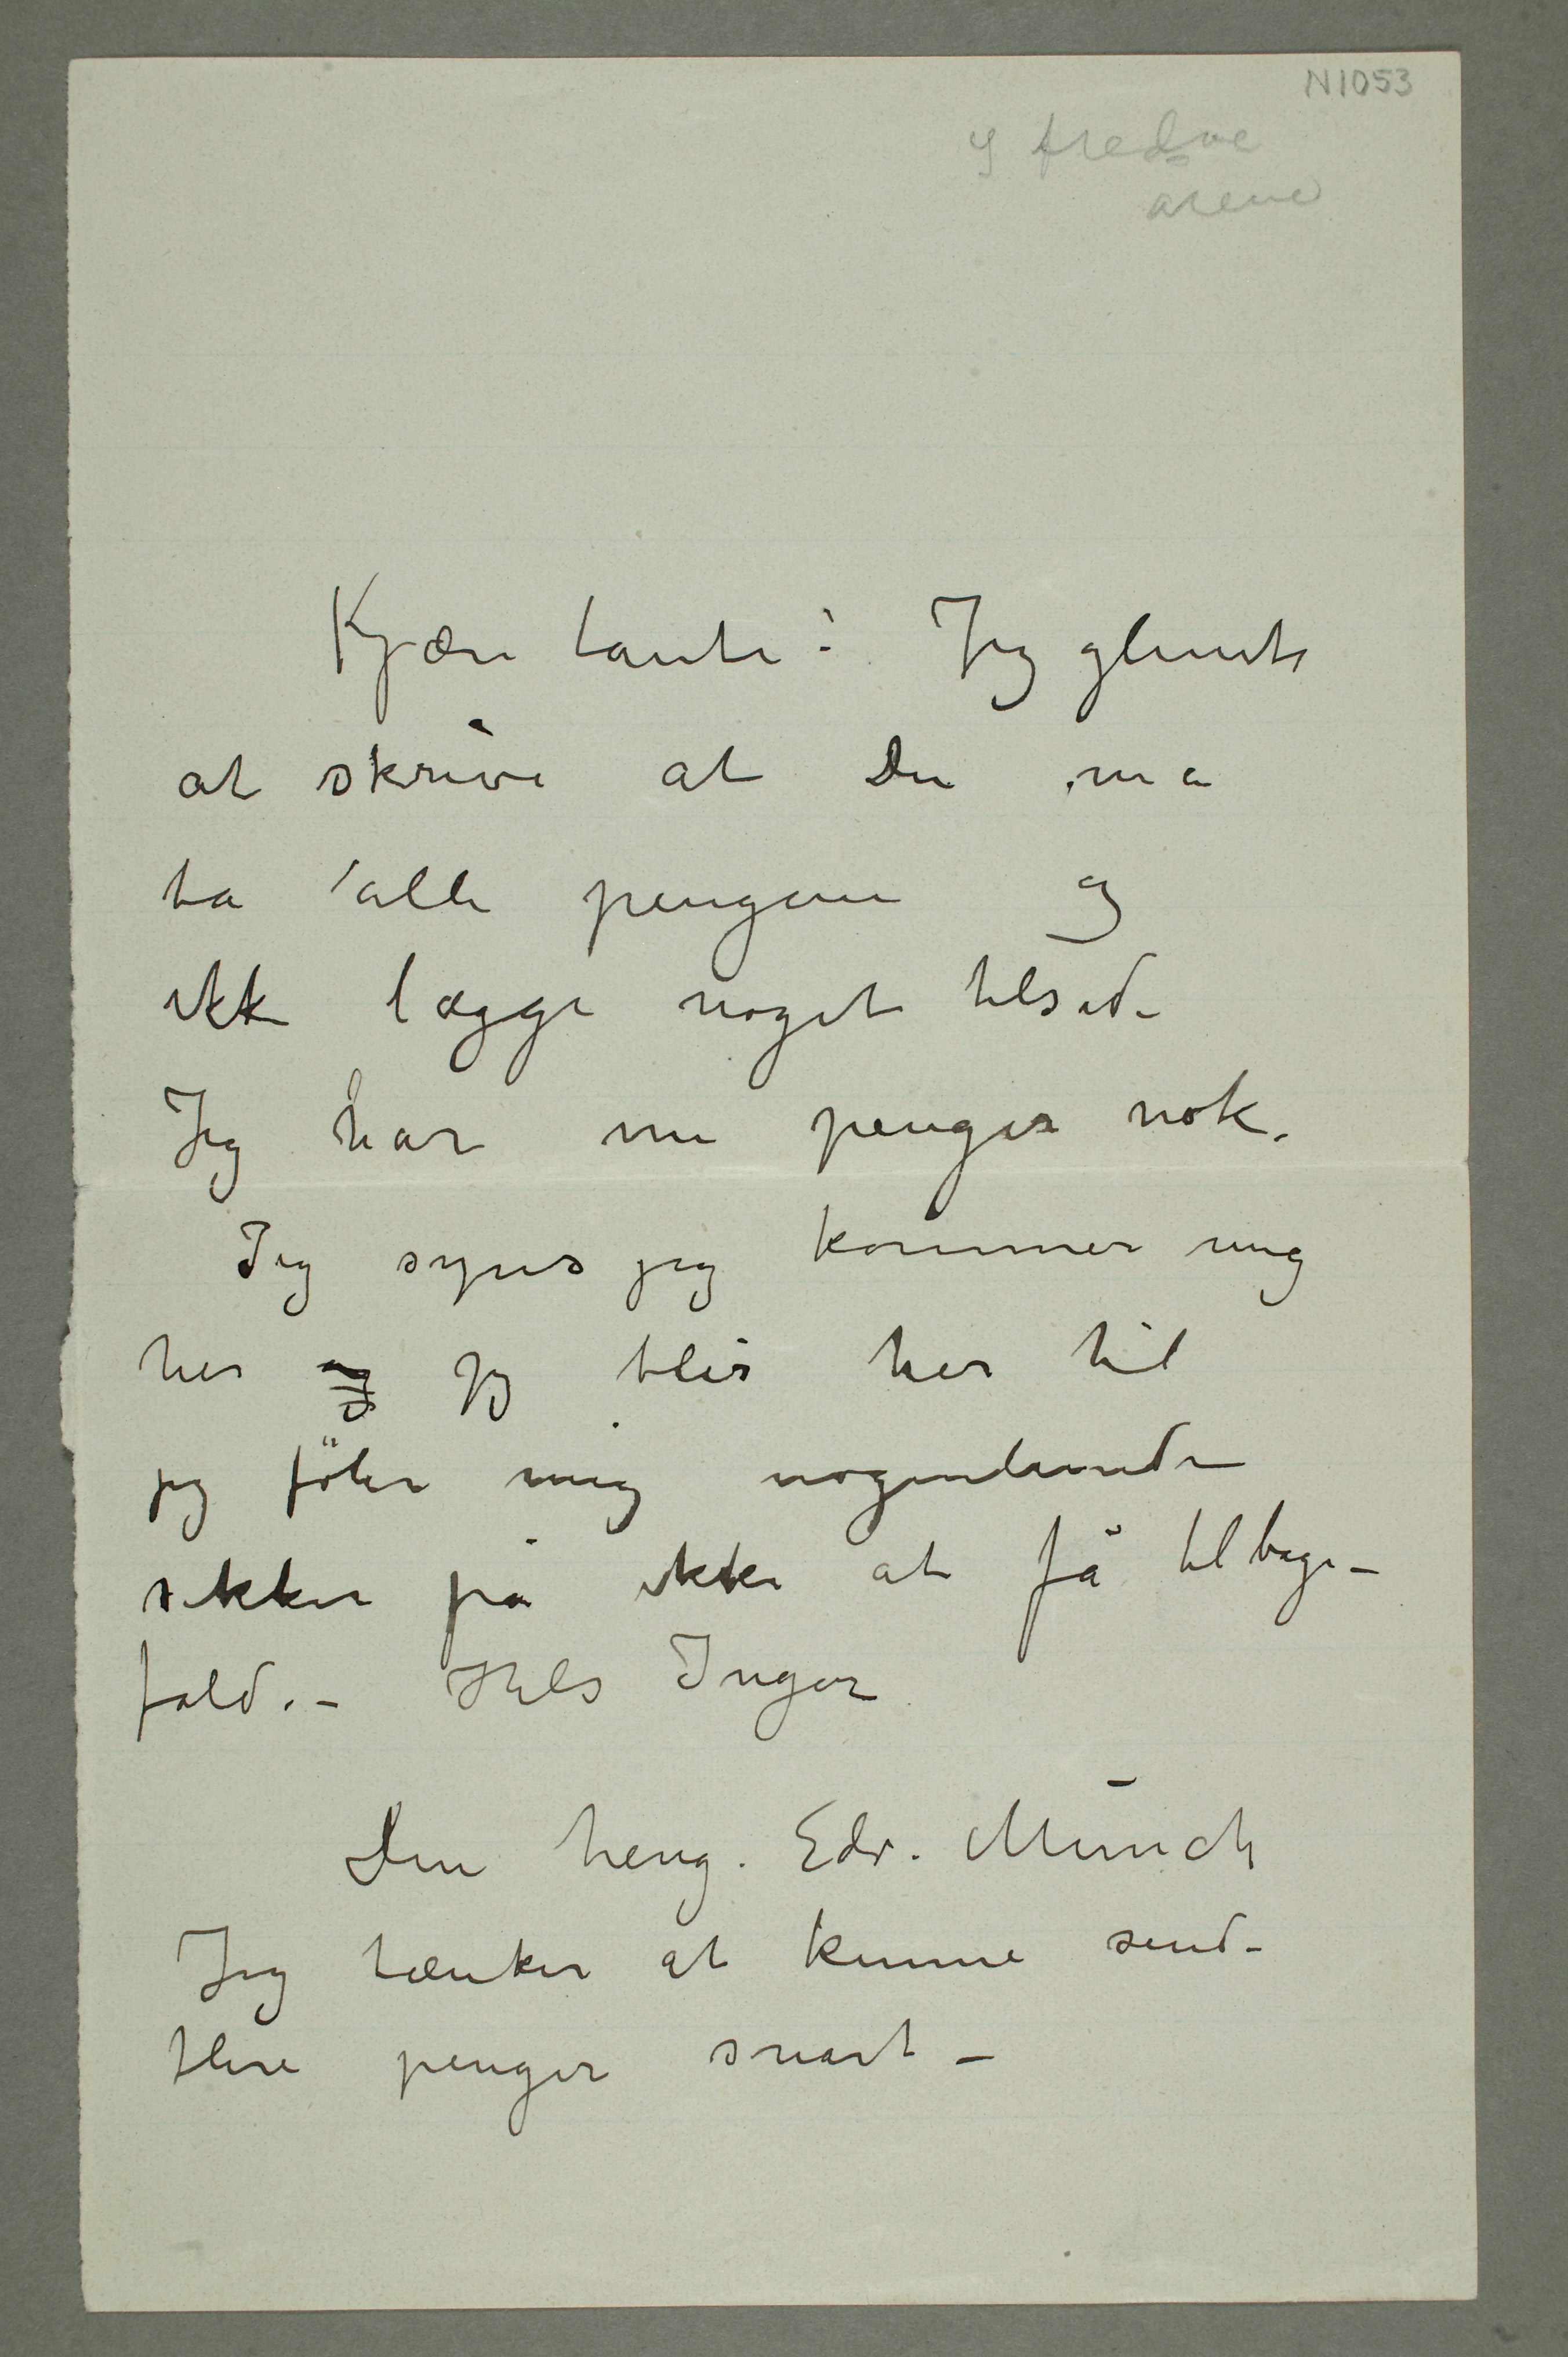 N1053
Kjære tante! Jeg glemte
at skrive at Du må
ta alle pengene og
ikke lægge noget tilside
Jeg har nu penger nok.
Jeg synes jeg kommer mig
her og jeg blir her til
jeg föler mig nogenlunde
sikker på ikke at få tilbage-
fald. – Hils Inger
Din heng. Edv. Munch
Jeg tænker at kunne sende
flere penger snart –